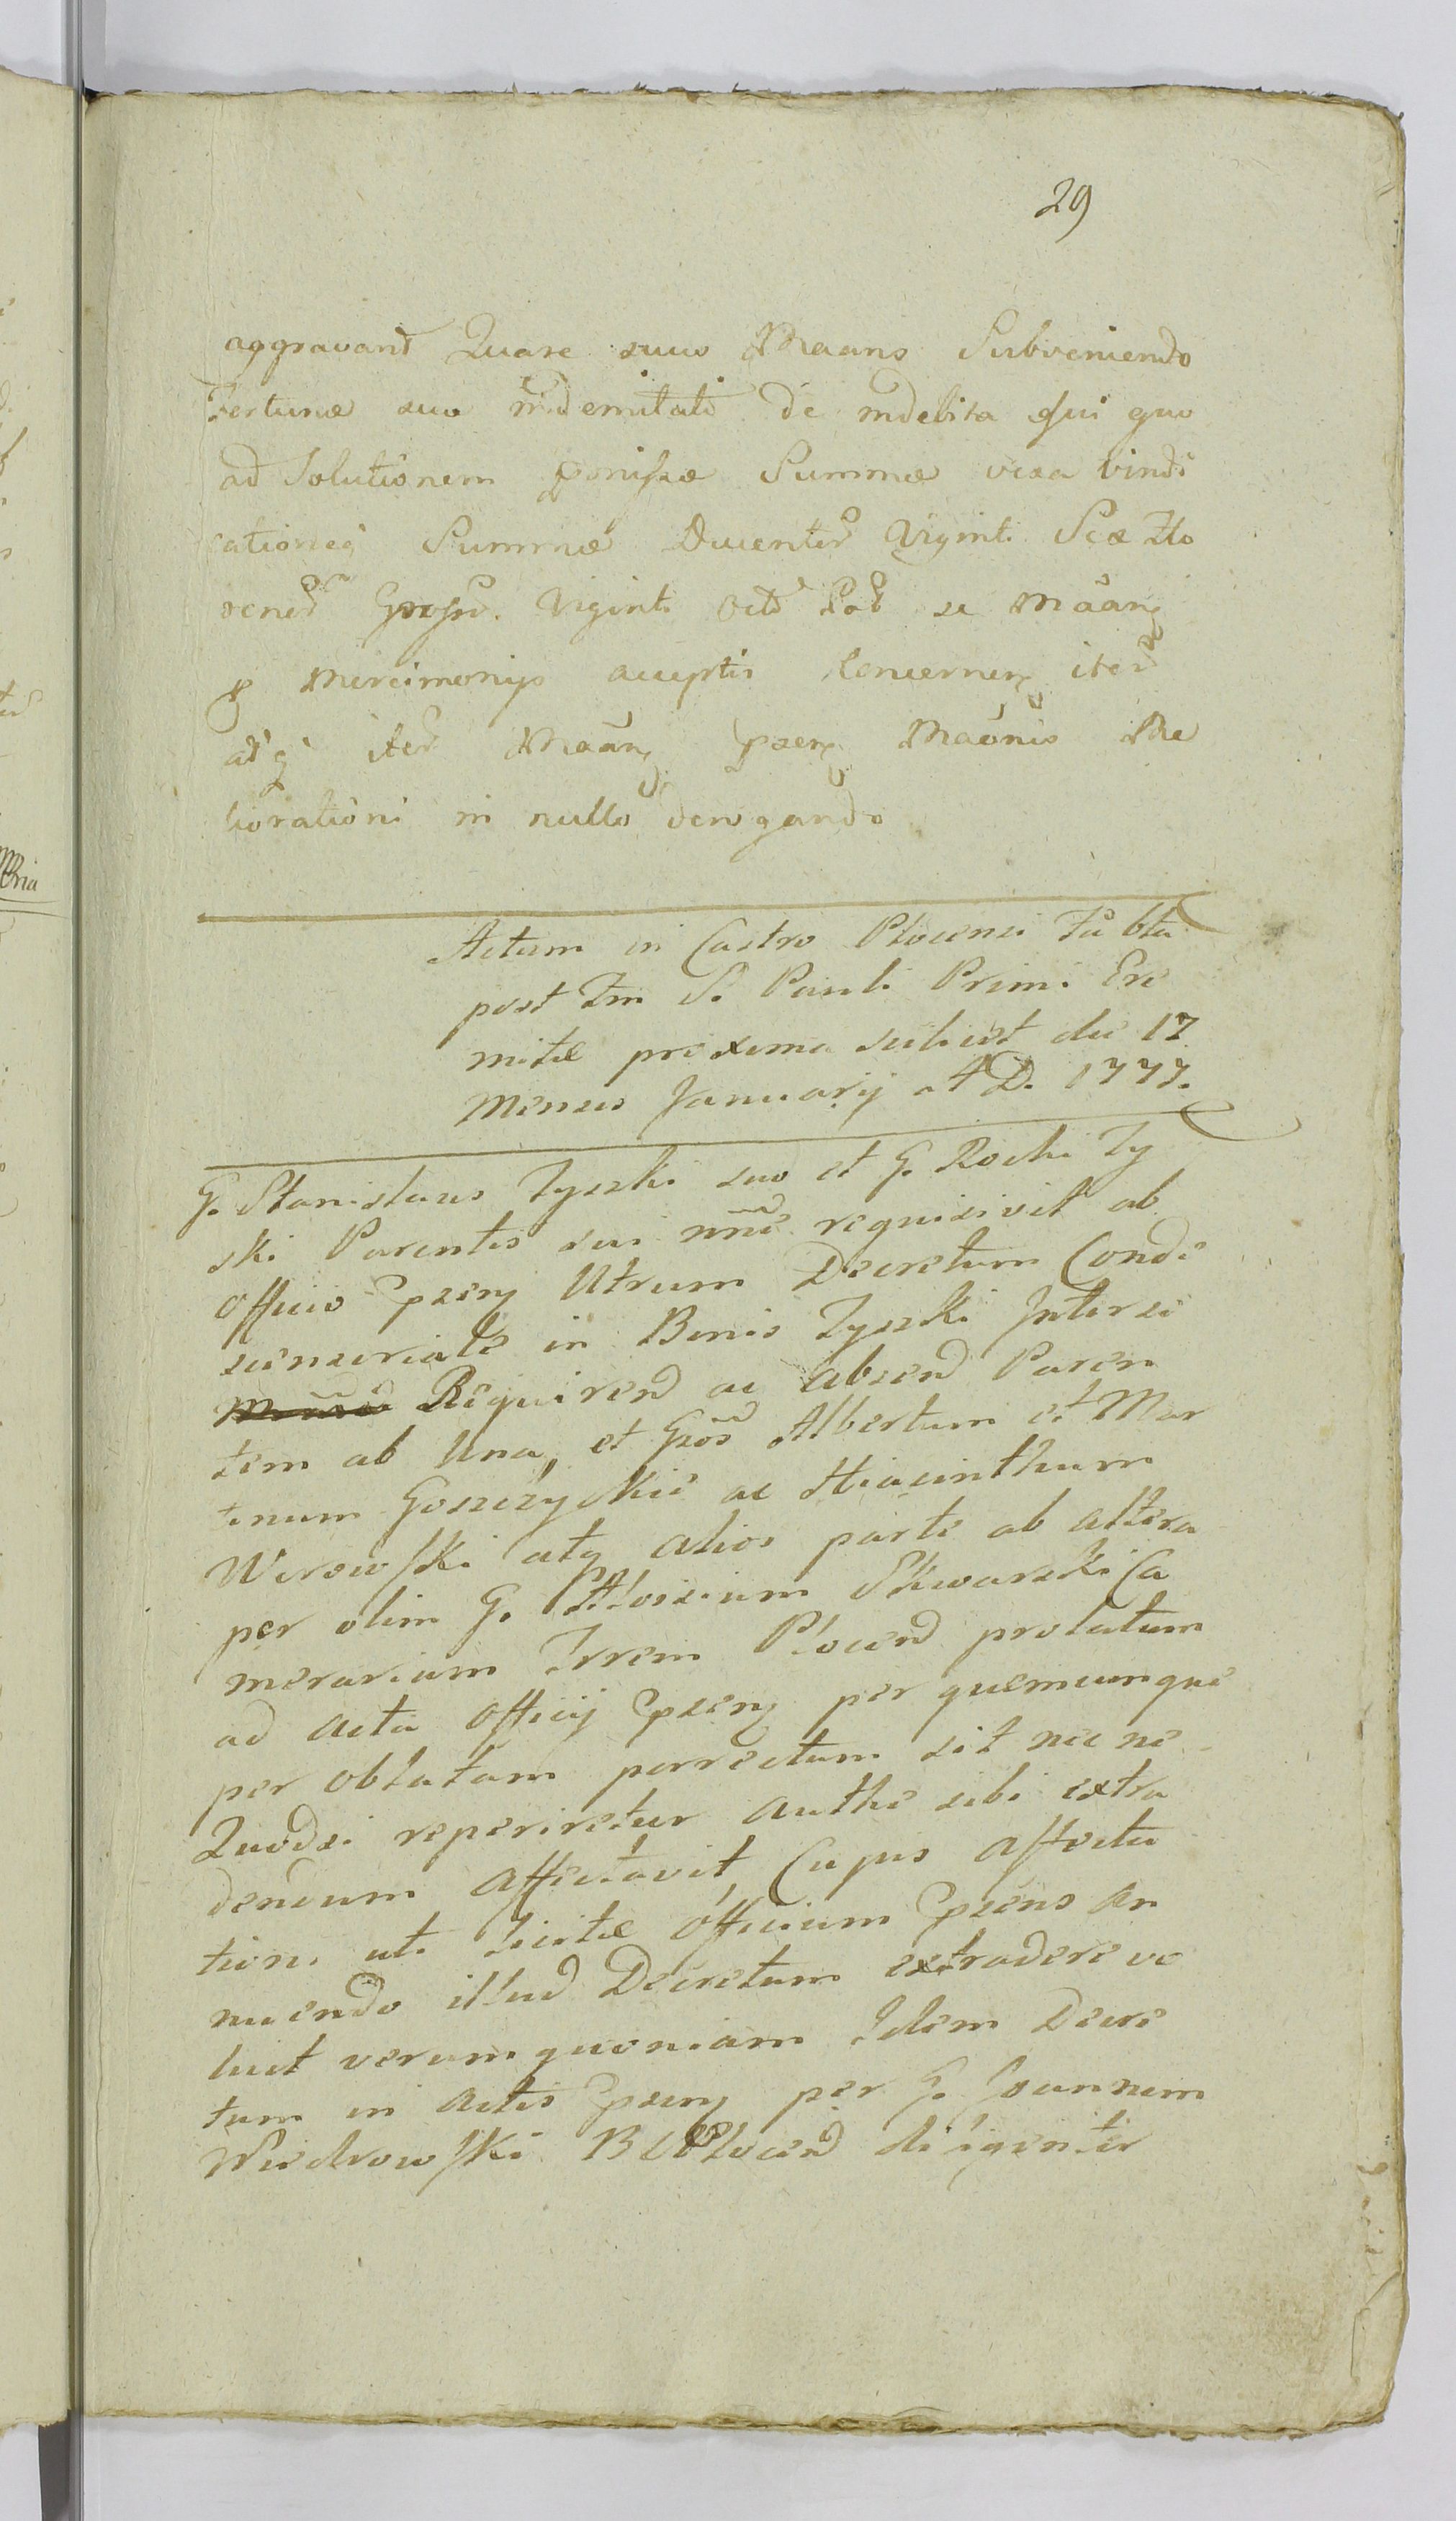 29
aggravand Quare suus Maans Subveniendo
Fortunæ suæ indemnitati de indebita sui quo
ad Solutionem præmissæ Summæ vexa vindi
cationeq Summæ Ducentor Viginti Scæ Flo
renor Grossor. Viginti octo ab se Maan
p Mercimonijs acceptis Concernen iter
atq iter Maan præsen Maonis Me
liorationi in nullo derogando
Actum in Castro Plocensi Fa bta
post Fm S. Pauli Primi Ere
mitæ proxima scilicet die 17
Mensis Januarij A D. 1777.
G. Stanislaus Tyszki suo et G. Rochi Ty
ski Parentis sui nne requisivit ab
Officio præsen Utrum Decretum Conde
scensuriale in Bonis Tyszki Inter se
Requirend ac absend Paren
tem ab una, et Gsos Albertum et Mar
tinum Goszczyckie ac Hiacinthum
Werowski atq alios parte ab altera
per olim G. Aloisium Skwarski Ca
merarium Trrem Plocen prolatum
ad Acta Officij præsen per quemcunque
per oblatam porrectum sit nec ne
Quodsi reperiretur authe sibi extra
dendum affectavit, Cujus affecta
tioni uti licitæ Officium præsens an
nuendo illud Decretum extradere vo
luit verum quoniam Idem Decre
tum in Actis præsen per G. Joannem
Wiechowski B C Plocen diligenter